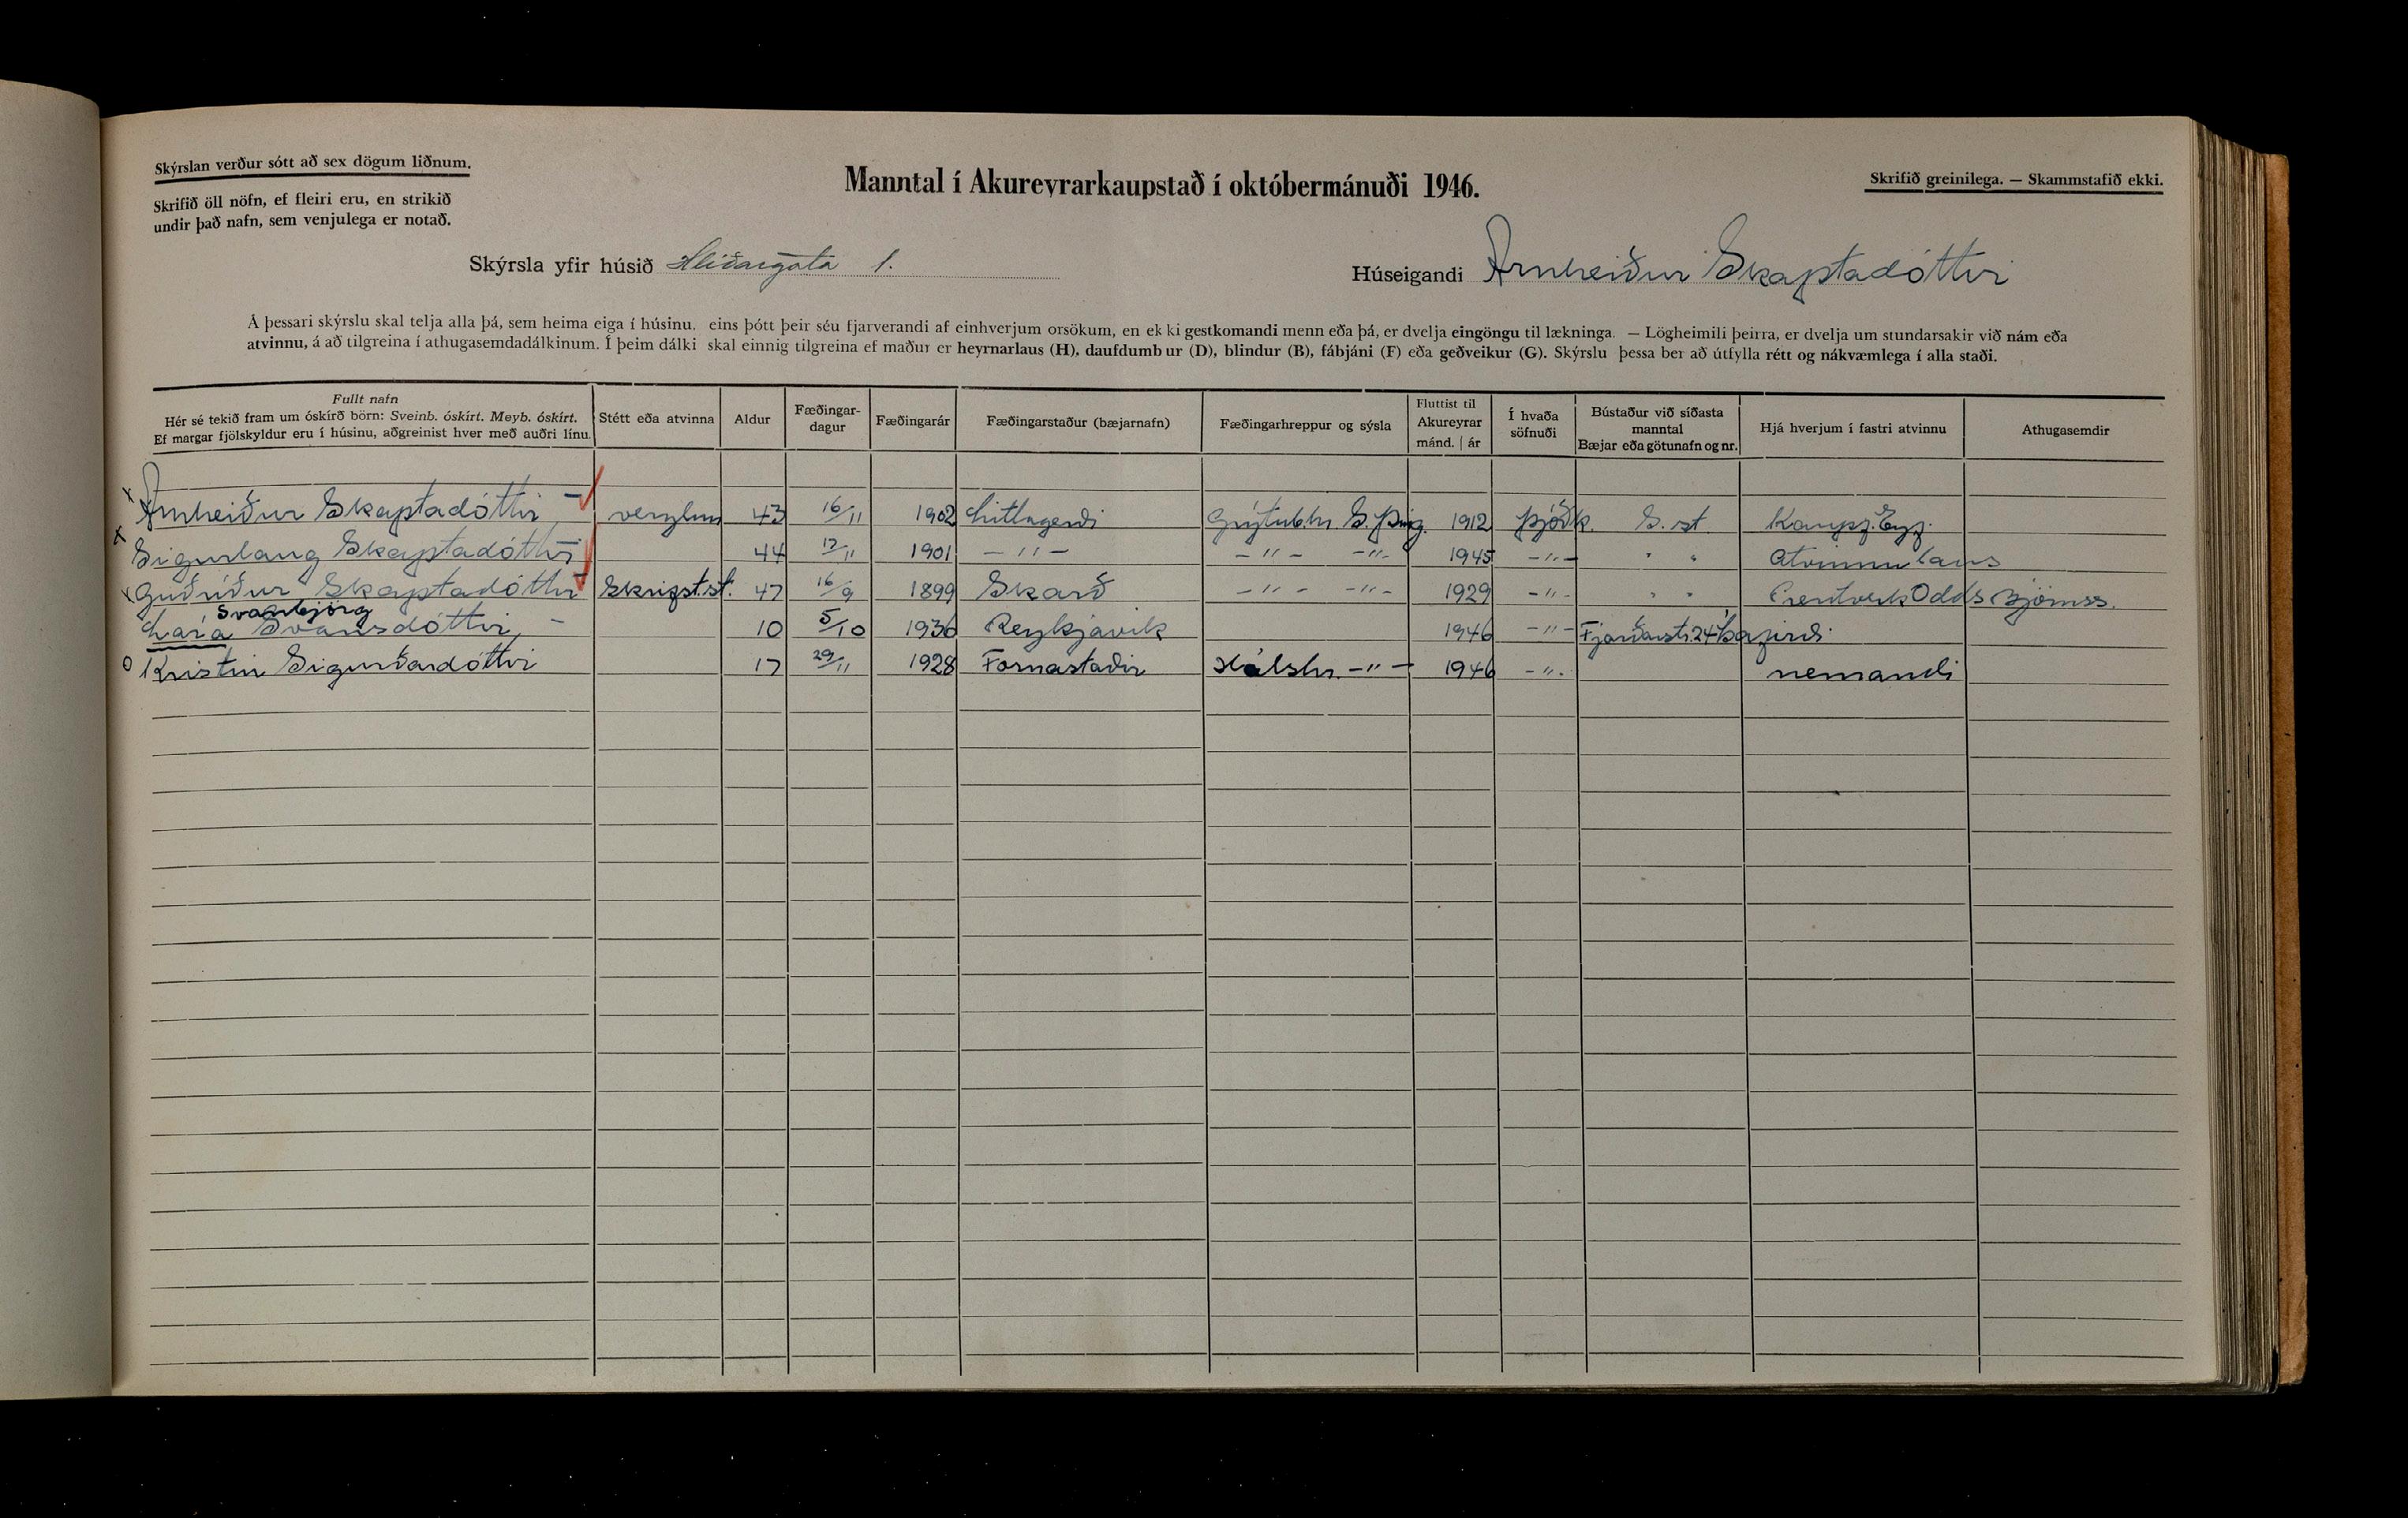 Skýrslan verður sótt að sex dögum liðnum.
Skrifið öll nöfn, ef fleiri eru, en strikið
undir það nafn, sem venjulega er notað.
Manntal í Akureyrarkaupstað í októbermánuði 1946.
Skrifið greinilega. — Skammstafið ekki.
Skýrsla yfir húsið Hlíðargata 1.
Húseigandi Arnheiður Skaptadóttir
Á þessari skýrslu skal telja alla þá, sem heima eiga í húsinu, eins þótt þeir séu fjarverandi af einhverjum orsökum, en ekki gestkomandi menn eða þá, er dvelja eingöngu til lækninga. — Lögheimili þeirra, er dvelja um stundarsakir við nám eða
atvinnu, á að tilgreina í athugasemdadálkinum. Í þeim dálki skal einnig tilgreina ef maður er heyrnarlaus (H), daufdumbur (D), blindur (B), fábjáni (F) eða geðveikur (G). Skýrslu þessa ber að útfylla rétt og nákvæmlega í alla staði.
Fullt nafn
Hér sé tekið fram um óskírð börn: Sveinb. óskírt. Meyb. óskírt.
Ef margar fjölskyldur eru í húsinu, aðgreinist hver með auðri línu.
Stétt eða atvinna
Aldur
Fæðingar-
dagur
Fæðingarár
Fæðingarstaður (bæjarnafn)
Fæðingarhreppur og sýsla
Fluttist til
Akureyrar
mánd. | ár
Í hvaða
söfnuði
Bústaður við síðasta
manntal
Bæjar eða götunafn og nr.
Hjá hverjum í fastri atvinnu
Athugasemdir
x Arnheiður Skaptadóttir – verzlun 43 16/11 1902 Litlagerði Grýtubhr. S. Þing. 1912 þjóðk. S. st. Kaupf. Eyf.
x Sigurlaug Skaptadóttir 44 17/11 1901 – " – – " – – " – 1945 – " – " " Atvinnulaus
x Guðríður Skaptadóttir Skrifst.st. 47 16/9 1899 Skarð – " – – " – 1929 – " – " " Prentverk Odds Björnss.
Svanbjörg
Lára Svansdóttir – 10 5/10 1936 Reykjavík 1946 – " – Fjarðarstr. 24 Ísafirði
o Kristín Sigurðardóttir 17 29/11 1928 Fornastaðir Hálshr. – " – 1946 – " – nemandi